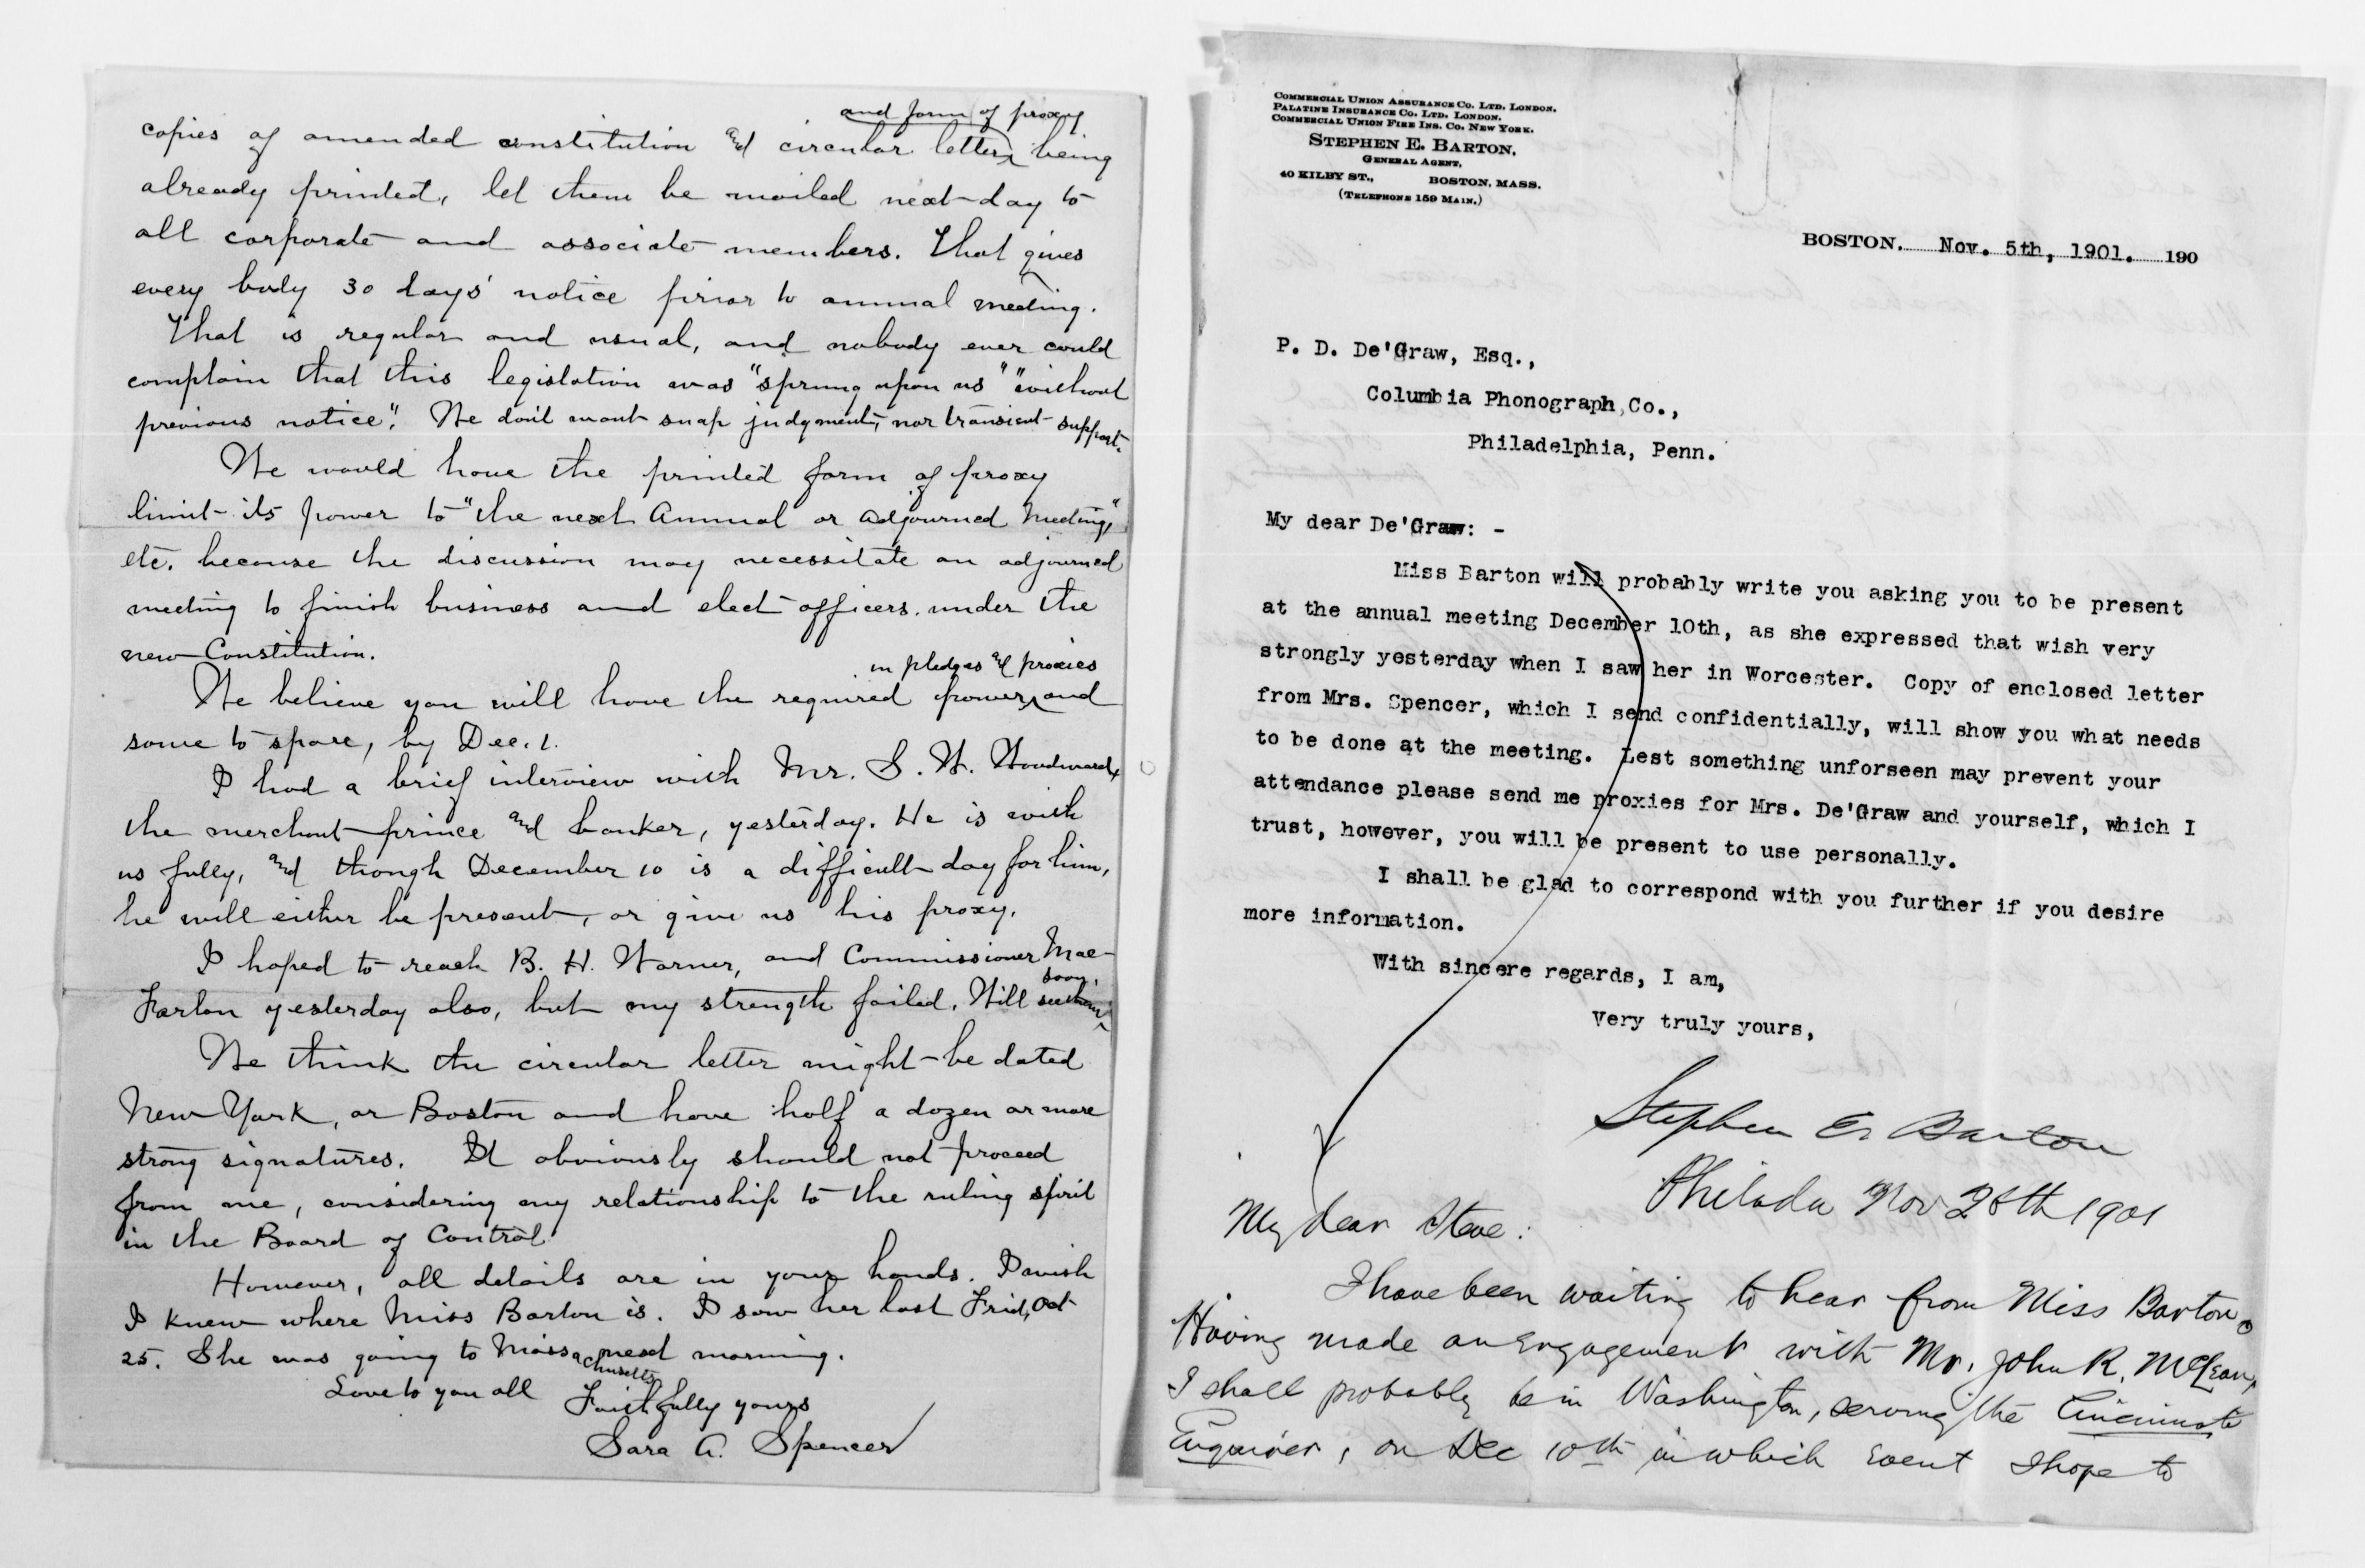 and form of proxy
copies of amended constitution and circular letter being
already printed, let them be mailed next day to
all corporate and associate members. That gives
every body 30 days' notice prior to annual meeting.
That is regular and usual, and nobody ever could
complain that this legislation was "sprung upon us" "without
previous notice". We don't want snap judgments, nor transient support.
We would have the printed form of proxy
limit its power to "the next Annual or adjourned meeting,"
etc. because the discussion may necessitate an adjourned
meeting to finish business and elect officers under the
new Constitution.
in pledges and proxies
We believe you will have the required power and
some to spare, by Dec. 1.
I had a brief interview with Mr. S. W. Woodward,
the merchant prince and banker, yesterday. He is with
us fully, and though December 10 is a difficult day for him,
he will either be present, or give us his proxy.
I hoped to reach B. H. Warner, and Commissioner Mac-
Farlan yesterday also, but my strength failed. Will see them
soon.
We think the circular letter might be dated
New York, or Boston and have half a dozen or more
strong signatures. It obviously should not proceed
from me, considering my relationship to the ruling spirit
in the Board of Control.
However, all details are in your hands. I wish
I knew where Miss Barton is. I saw her last Frid, Oct
25. She was going to Massachusetts next morning.
Love to you all
Faithfully yours
Sara A. Spencer
COMMERCIAL UNION ASSURANCE CO. LTD. LONDON.
PALATINE INSURANCE CO. LTD. LONDON.
COMMERCIAL UNION FIRE INS. CO. NEW YORK.
STEPHEN E. BARTON,
GENERAL AGENT,
40 KILBY ST., BOSTON, MASS.
(TELEPHONE 159 MAIN.)
BOSTON, Nov. 5th, 1901. 190
P. D. De'Graw, Esq.,
Columbia Phonograph Co.,
Philadelphia, Penn.
My dear De'Graw: -
Miss Barton will probably write you asking you to be present
at the annual meeting December 10th, as she expressed that wish very
strongly yesterday when I saw her in Worcester. Copy of enclosed letter
from Mrs. Spencer, which I send confidentially, will show you what needs
to be done at the meeting. Lest something unforseen may prevent your
attendance please send me proxies for Mrs. De'Graw and yourself, which I
trust, however, you will be present to use personally.
I shall be glad to correspond with you further if you desire
more information.
With sincere regards, I am,
Very truly yours,
Stephen E. Barton
Philada Nov 28th 1901
My dear Steve:
I have been waiting to hear from Miss Barton.
Having made an engagement with Mr. John R. McLean,
I shall probably be in Washington, serving the Cincinnati
Enquirer, on Dec 10th in which event I hope to